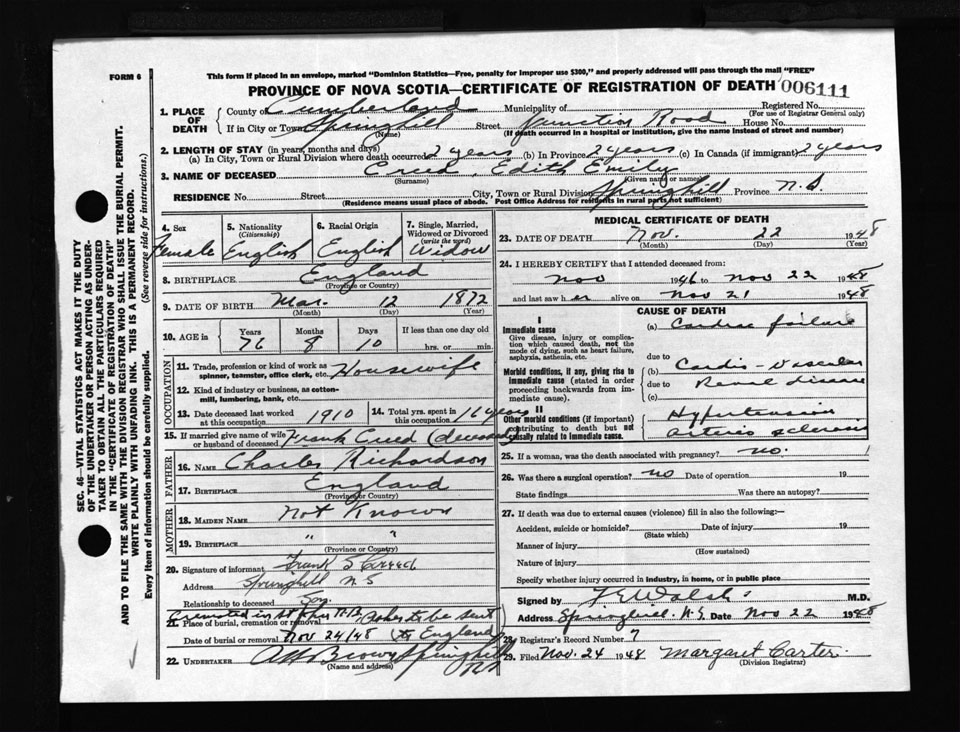 FORM 6
This form if placed in an envelope, marked "Dominion Statistics—Free, penalty for improper use $300," and properly addressed will pass through the mail "FREE"
PROVINCE OF NOVA SCOTIA—CERTIFICATE OF REGISTRATION OF DEATH 006111
1. PLACE OF DEATH
County of Cumberland Municipality of Registered No.
(For use of Registrar General only)
If in City or Town Springhill Street Junction Road House No.
(Name) (If death occurred in a hospital or institution, give the name instead of street and number)
2. LENGTH OF STAY (in years, months and days)
(a) In City, Town or Rural Division where death occurred 2 years (b) In Province 2 years (c) In Canada (if immigrant) 2 years
3. NAME OF DECEASED Creed, Edith Emily
(Surname) (Given name or names)
RESIDENCE No. Street City, Town or Rural Division Springhill Province N.S.
(Residence means usual place of abode. Post Office Address for residents in rural parts not sufficient)
4. Sex Female
5. Nationality (Citizenship) English
6. Racial Origin English
7. Single, Married, Widowed or Divorced (write the word) Widow
8. BIRTHPLACE England
(Province or Country)
9. DATE OF BIRTH Mar. 12 1872
(Month) (Day) (Year)
10. AGE in Years Months Days If less than one day old
76 8 10 hrs. or min.
OCCUPATION
11. Trade, profession or kind of work as spinner, teamster, office clerk, etc. Housewife
12. Kind of industry or business, as cotton-mill, lumbering, bank, etc.
13. Date deceased last worked at this occupation 1910
14. Total yrs. spent in this occupation 16 years
15. If married give name of wife or husband of deceased Frank Creed (deceased)
FATHER
16. NAME Charles Richardson
17. BIRTHPLACE England
(Province or Country)
MOTHER
18. MAIDEN NAME Not Known
19. BIRTHPLACE " "
(Province or Country)
20. Signature of informant Frank S Creed
Address Springhill N S
Relationship to deceased Son
Cremated in St John N.B. ashes to be sent
21. Place of burial, cremation or removal
Date of burial or removal Nov 24/48 (to England)
22. UNDERTAKER A H Brown Springhill N.S.
(Name and address)
MEDICAL CERTIFICATE OF DEATH
23. DATE OF DEATH Nov. 22 1948
(Month) (Day) (Year)
24. I HEREBY CERTIFY that I attended deceased from:
Nov 1946 to Nov 22 1948
and last saw her alive on Nov 21 1948
CAUSE OF DEATH
I
Immediate cause
Give disease, injury or complication which caused death, not the mode of dying, such as heart failure, asphyxia, asthenia, etc.
(a) Cardiac failure
due to
Morbid conditions, if any, giving rise to immediate cause (stated in order proceeding backwards from immediate cause).
(b) Cardio-Vascular
due to Renal disease
(c)
II
Other morbid conditions (if important) contributing to death but not causally related to immediate cause.
Hypertension
arterio sclerosis
25. If a woman, was the death associated with pregnancy? no.
26. Was there a surgical operation? no Date of operation 19
State findings Was there an autopsy?
27. If death was due to external causes (violence) fill in also the following:—
Accident, suicide or homicide? Date of injury 19
(State which)
Manner of injury
(How sustained)
Nature of injury
Specify whether injury occurred in industry, in home, or in public place
Signed by Walsh M.D.
Address Springhill N.S. Date Nov 22 1948
28. Registrar's Record Number 7
29. Filed Nov. 24 1948 Margaret Carter.
(Division Registrar)
SEC. 46—VITAL STATISTICS ACT MAKES IT THE DUTY
OF THE UNDERTAKER OR PERSON ACTING AS UNDERTAKER TO OBTAIN ALL THE PARTICULARS REQUIRED
IN THE "CERTIFICATE OF REGISTRATION OF DEATH"
AND TO FILE THE SAME WITH THE DIVISION REGISTRAR WHO SHALL ISSUE THE BURIAL PERMIT.
WRITE PLAINLY WITH UNFADING INK. THIS IS A PERMANENT RECORD.
Every item of information should be carefully supplied. (See reverse side for instructions).